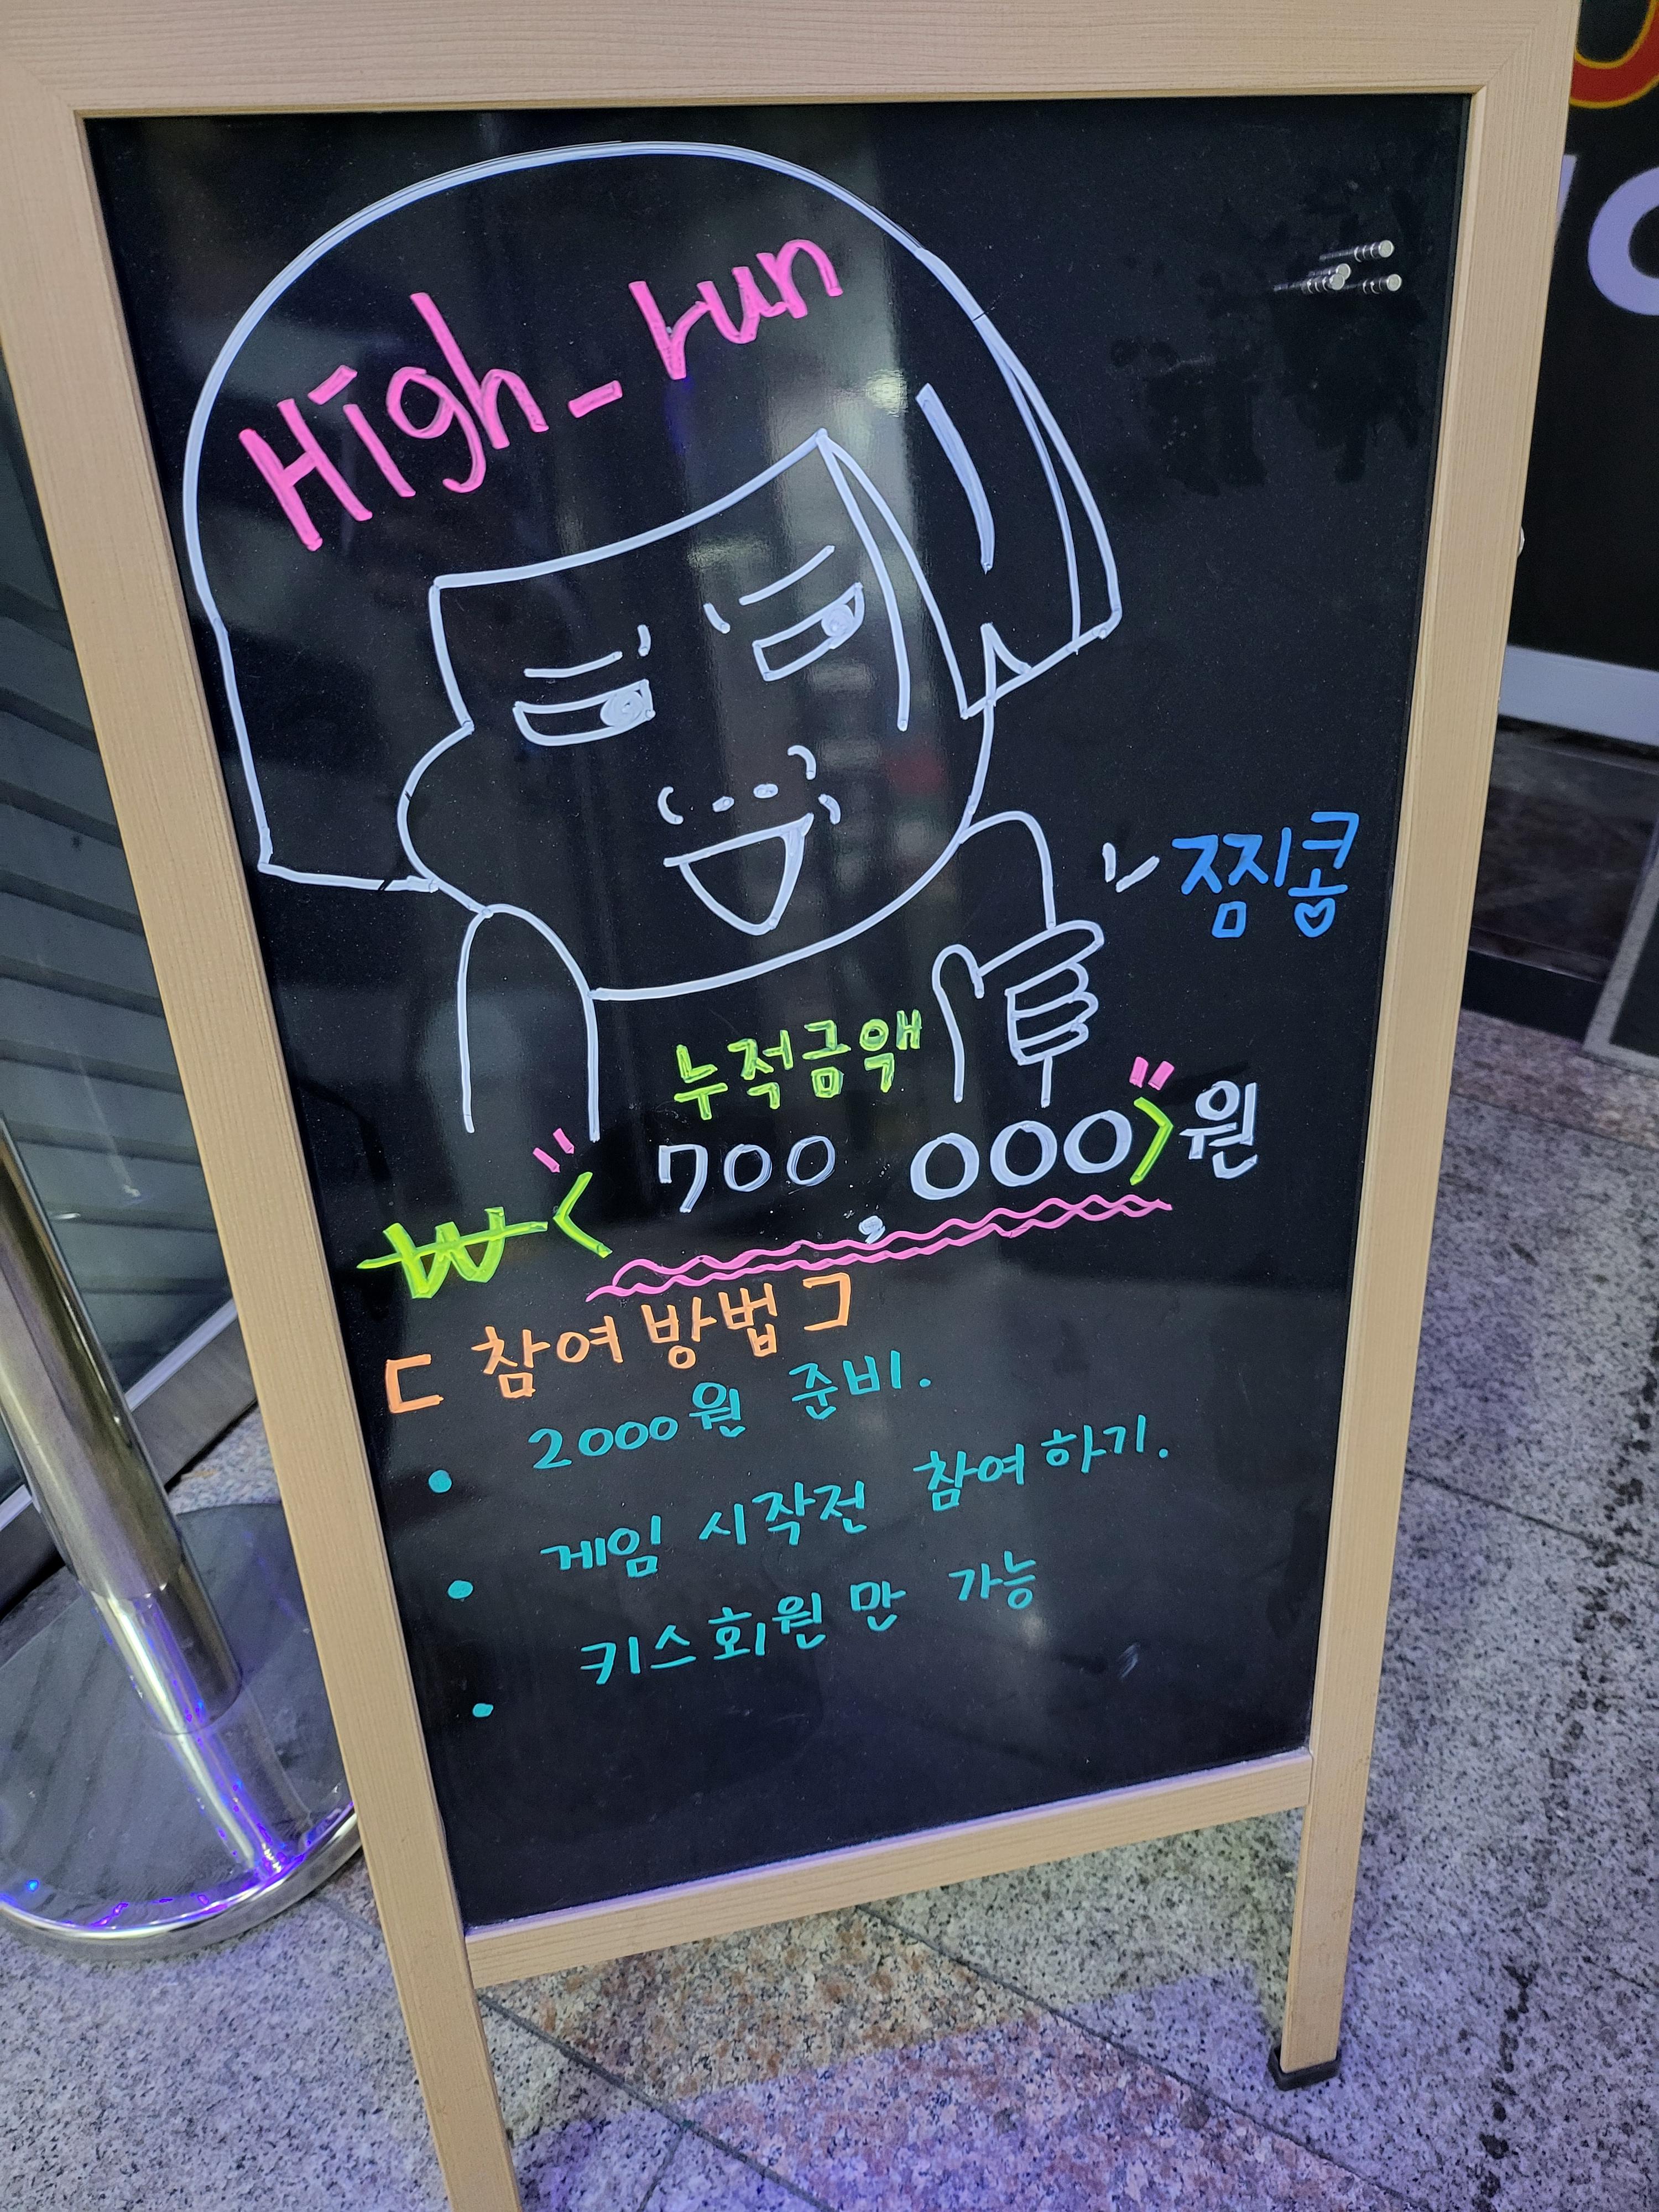 High_run
찜콩
누적금액
₩ < 700,000 > 원
[ 참여방법 ]
• 2000원 준비.
• 게임 시작전 참여하기.
• 키스회원만 가능